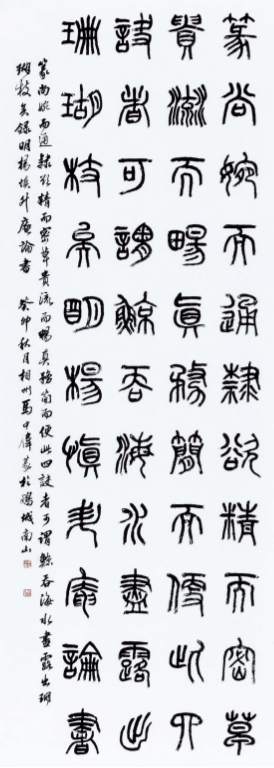 篆尚婉而通隸欲精而密草
貴流而暢真務簡而便此四
訣者可謂鯨吞海水盡露出
珊瑚枝矣明楊慎升庵論書
篆尚婉而通隸欲精而密草貴流而暢真務簡而便此四訣者可謂鯨吞海水盡露出珊
瑚枝矣錄明楊慎升庵論書 癸卯秋月相州馬中篆於城南山